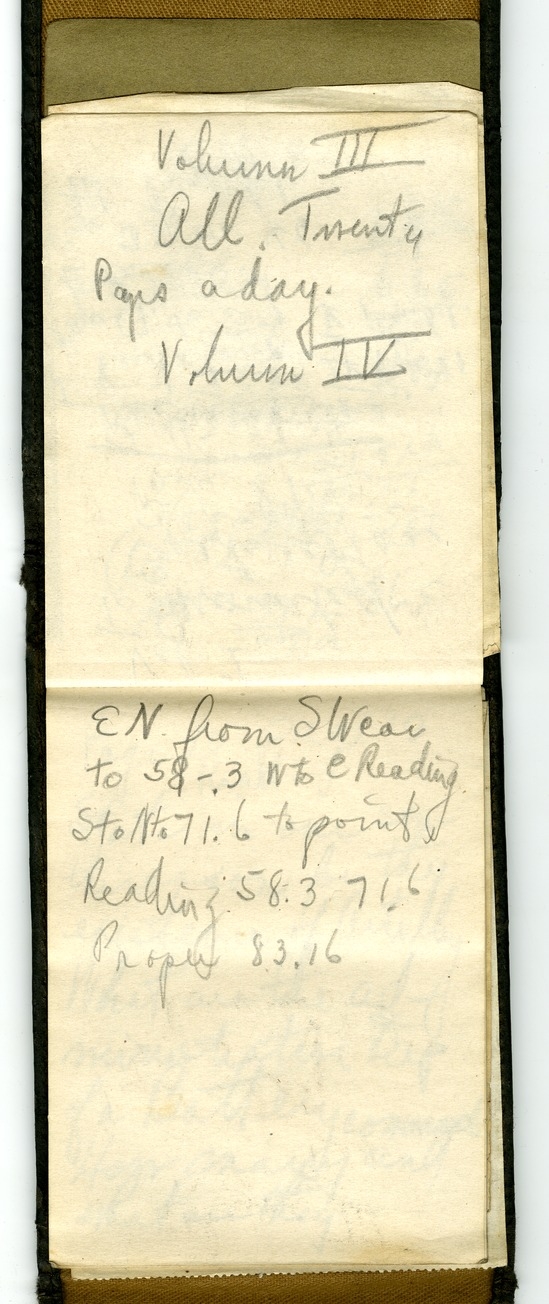 Volume III
All. Twenty
Pages a day.
Volume IV
E N. from S Wear
to 58-.3 W to E Reading.
S to N to 71.6 to point
Reading 58.3 71.6
Proper 83.16